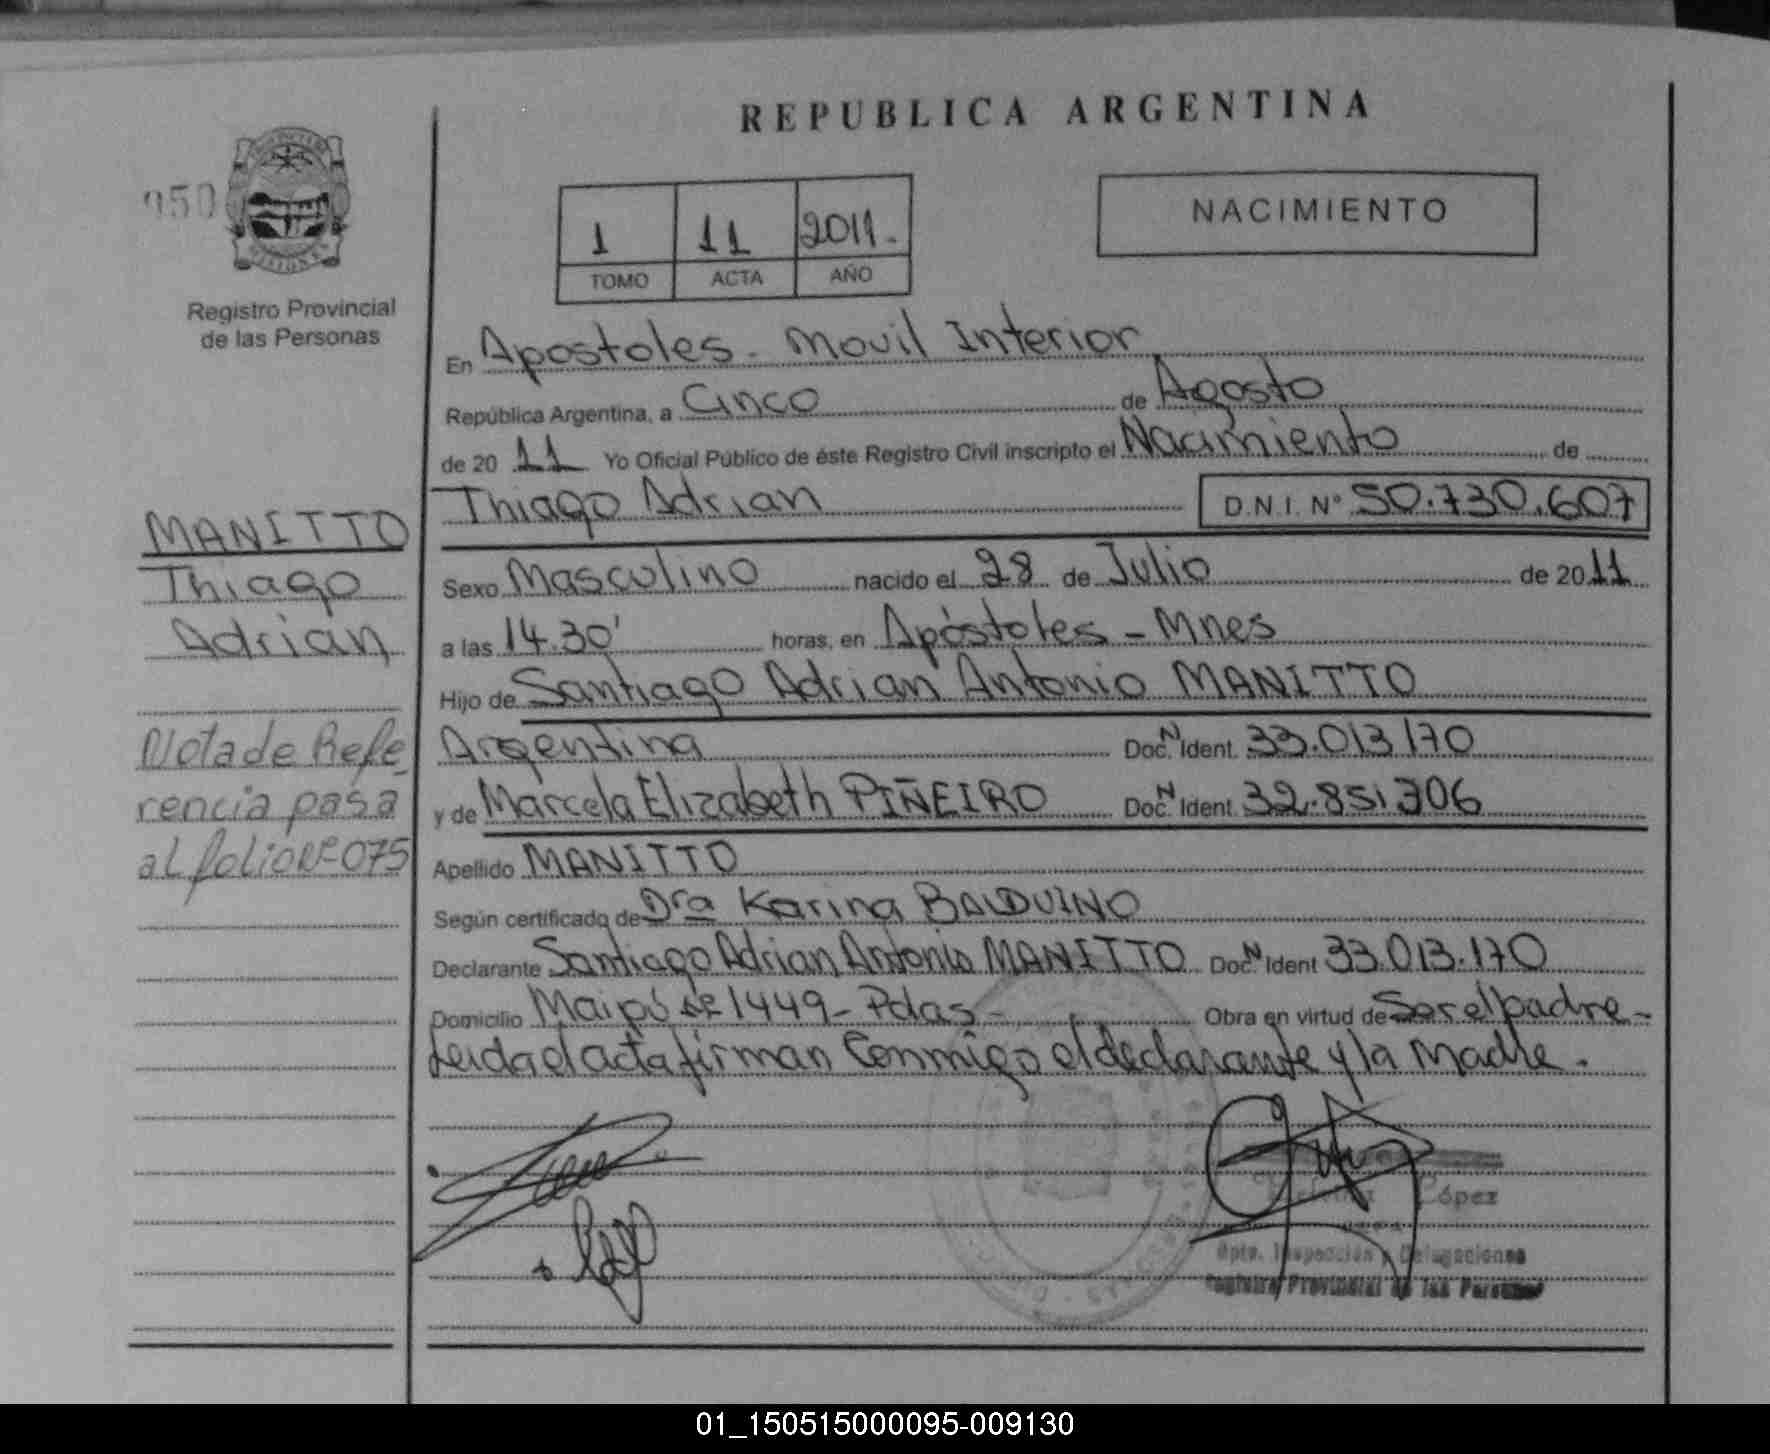 REPUBLICA ARGENTINA
050
MISIONES
Registro Provincial
de las Personas
1 11 2011.
TOMO ACTA AÑO
NACIMIENTO
En Apostoles - Movil Interior
República Argentina, a Cinco de Agosto
de 20 11 Yo Oficial Público de éste Registro Civil inscripto el Nacimiento de
Thiago Adrian D.N.I. Nº 50.730.607
Sexo Masculino nacido el 28 de Julio de 20 11
a las 14.30' horas, en Apóstoles - Mnes
Hijo de Santiago Adrian Antonio MANITTO
Argentina Doc. N Ident. 33.013.170
y de Marcela Elizabeth PIÑEIRO Doc. N Ident. 32.851.306
Apellido MANITTO
Según certificado de Dra Karina BALDUINO
Declarante Santiago Adrian Antonio MANITTO Doc. N Ident 33.013.170
Domicilio Maipú Nº 1449 - Pdas - Obra en virtud de Ser el padre -
Leida el acta firman Conmigo el declarante y la Madre.
MANITTO
Thiago
Adrián
Nota de Refe_
rencia pasa
al folio Nº 075
López
Dpto. Inspección y Delegaciones
Registro Provincial de las Personas
01_150515000095-009130